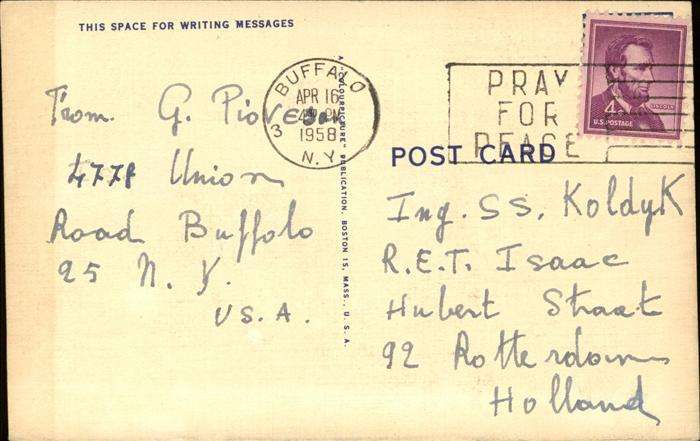 THIS SPACE FOR WRITING MESSAGES
From. G. Piovesan
Union
Road Buffalo
25 N. Y.
U.S.A.
BUFFALO
APR 16
PM
3
1958
N.Y.
A "COLOURPICTURE" PUBLICATION, BOSTON 15, MASS., U. S. A.
PRAY
FOR
PEACE
4¢ LINCOLN
U.S. POSTAGE
POST CARD
Ing. S S, Koldyk
R.E.T. Isaac
Hubert Straat
92 Rotterdam
Holland